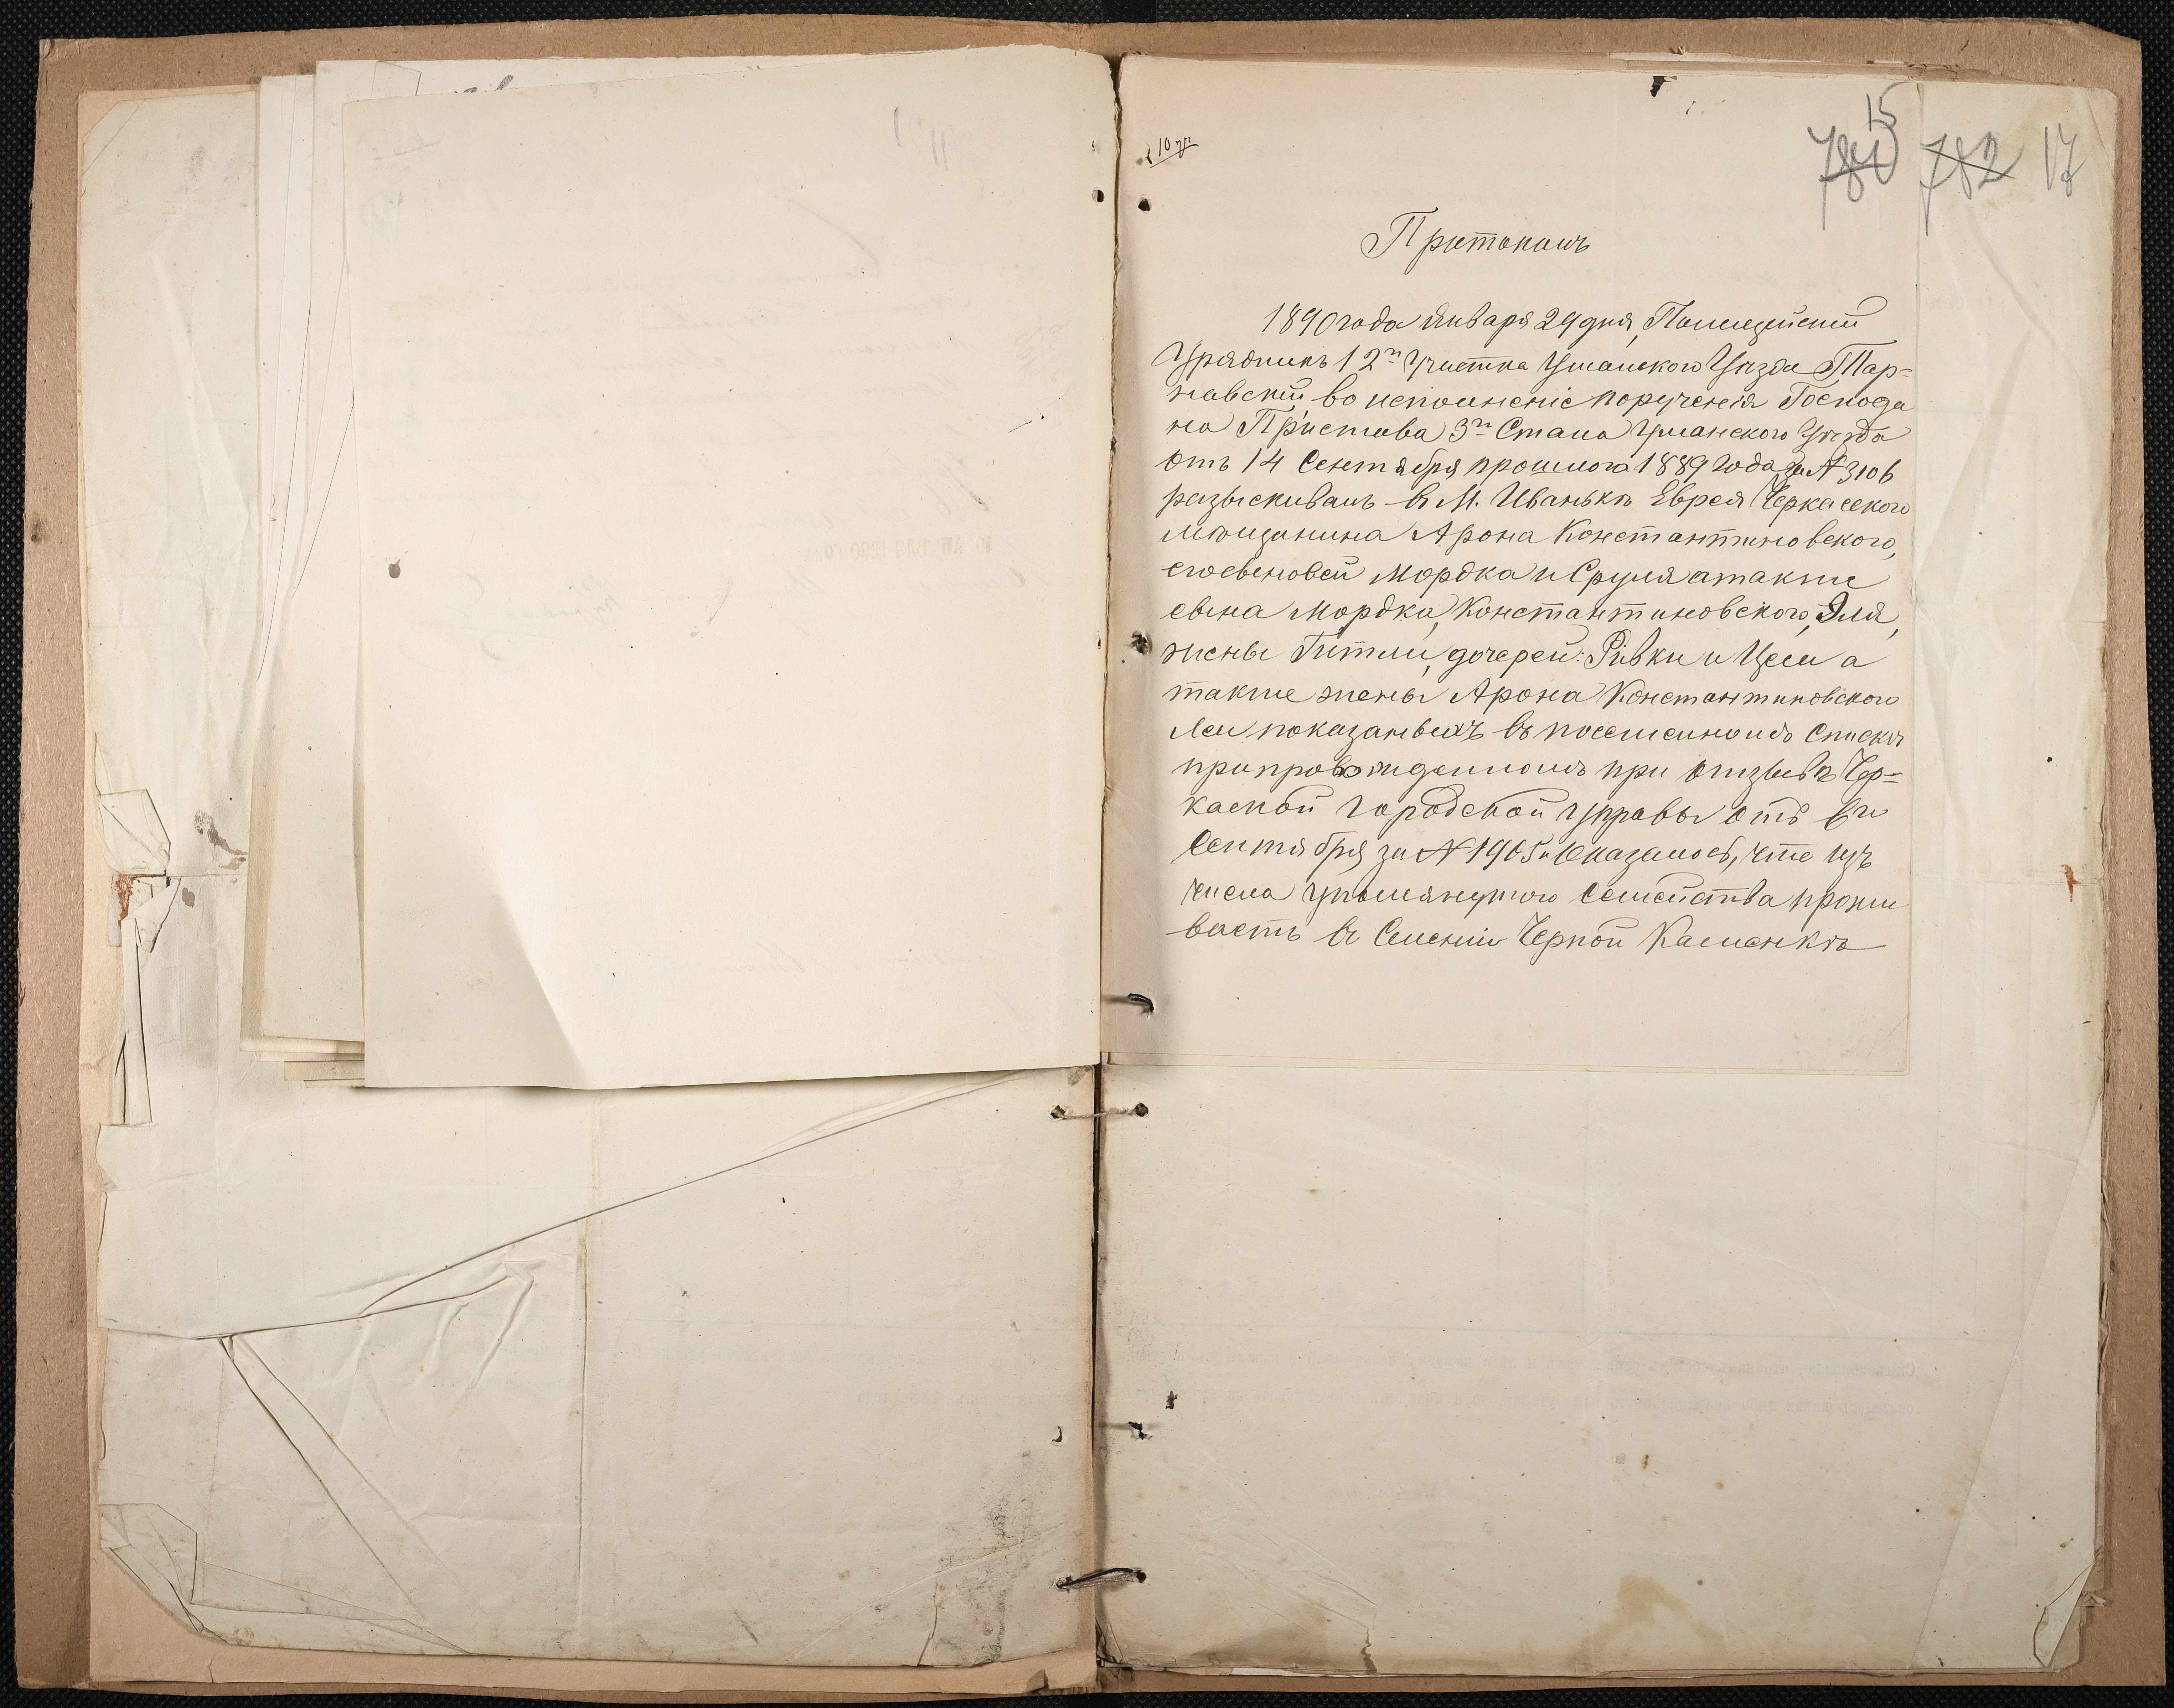 15
782 17
Протоколъ
1890 года Января 29 дня, Полицейскій
Урядникъ 12го Участка Уманского Уѣзда Тар-
навскій во исполненіе порученія Господи
на Пристава 3го Стана Уманского Уѣзда
отъ 14 Сентября прошлого 1889 года за № 3106
разыскивалъ въ М. Иванькѣ Еврея Черкасского
мѣщанина Арона Константиновского,
его сыновей Мордка и Сруля атакже
сына Мордка, Константиновского, Эля,
жены Гитли, дочерей: Ривки и Цеси а
также жены Арона Константиновского
Леи показанныхъ въ посемейномъ Спискѣ
припровожденномъ при отзывѣ Чер-
каской Городской Управы отъ 6го
Сентября за № 1965 и Оказалось, что изъ
числа упомянутого Семейства прожи
ваетъ въ Селеніи Черной Каменкѣ